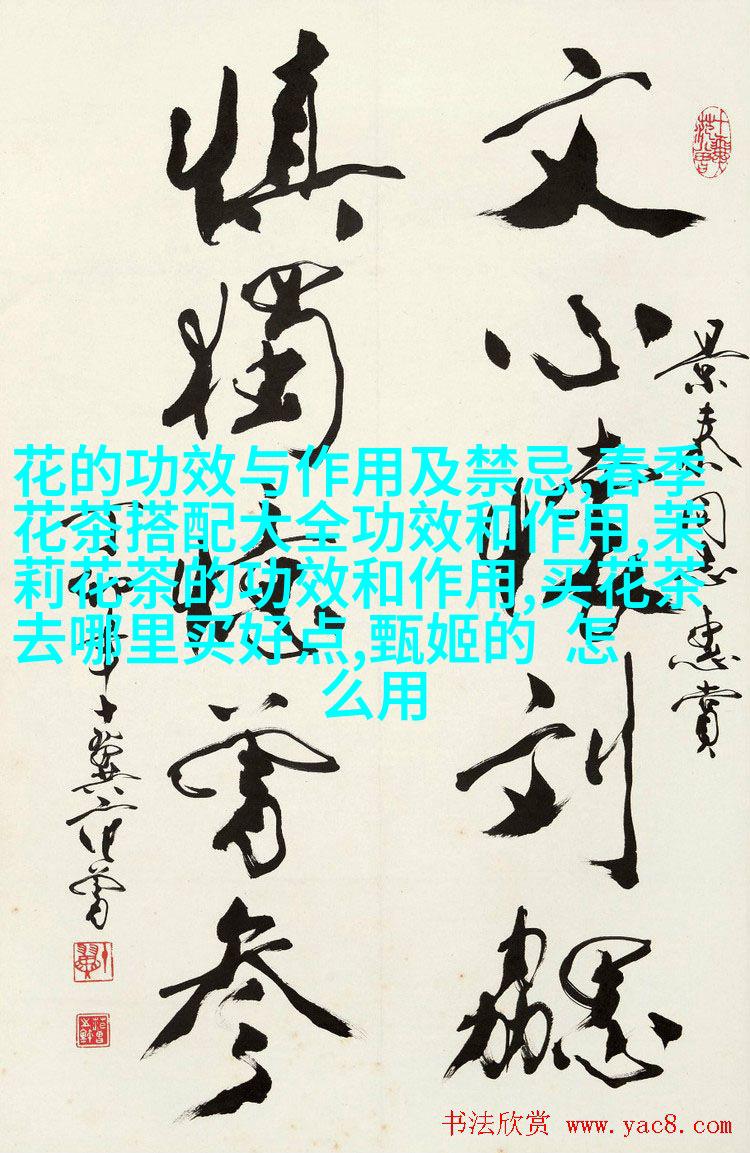 花的功效与作用及禁忌,春季
花茶搭配大全功效和作用,茉
莉花茶的功效和作用,买花茶
去哪里买好点,甄姬的 怎
么用
文心懷刘勰
慎獨憶曾參
同志惠賞
十翼范曾
书法欣赏 www.yac8.com